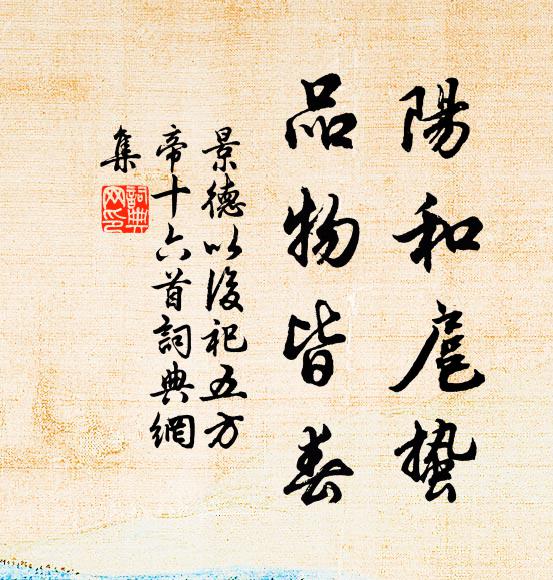 陽和啟蟄
品物皆春
景德以後祀五方
帝十六首詞典網
集
詞典網印